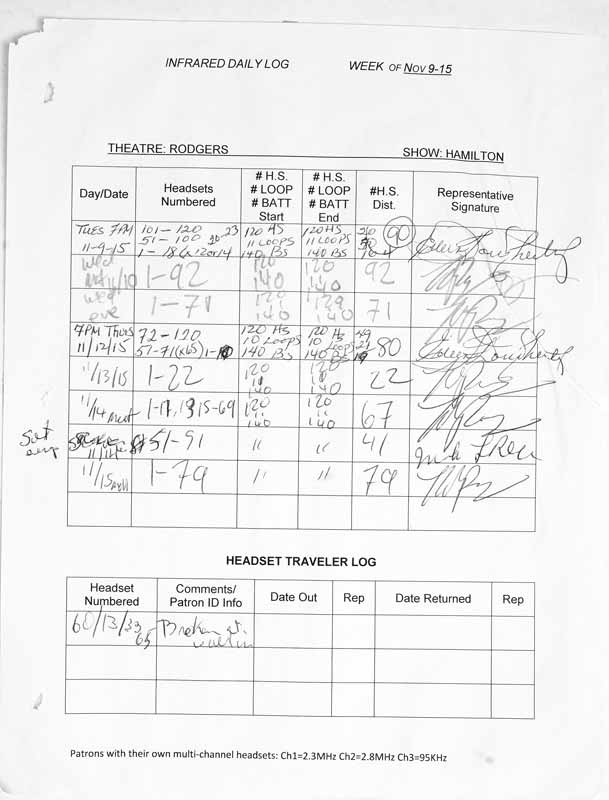 INFRARED DAILY LOG WEEK OF NOV 9-15
THEATRE: RODGERS SHOW: HAMILTON
Day/Date
Headsets
Numbered
# H.S.
# LOOP
# BATT
Start
# H.S.
# LOOP
# BATT
End
#H.S.
Dist.
Representative
Signature
TUES 7PM
11-9-15
101-120
51-100
120 HS
11 LOOPS
140 BS
120 HS
11 LOOPS
140 BS
90
Wed
11/10
1-92
120
140
120
140
92
Wed
eve
1-71
120
140
120
140
71
7PM THURS
11/12/15
72-120
120 HS
10 LOOPS
140 BS
120 HS
10 LOOPS
140 BS
80
11/13/15
1-22
120
11
140
120
140
22
11/14 mat
120
11
140
120
11
140
67
Sat
eve
51-91
"
"
41
11/15
1-79
"
"
79
HEADSET TRAVELER LOG
Headset
Numbered
Comments/
Patron ID Info
Date Out
Rep
Date Returned
Rep
60/13/33
65
Broken
Patrons with their own multi-channel headsets: Ch1=2.3MHz Ch2=2.8MHz Ch3=95KHz